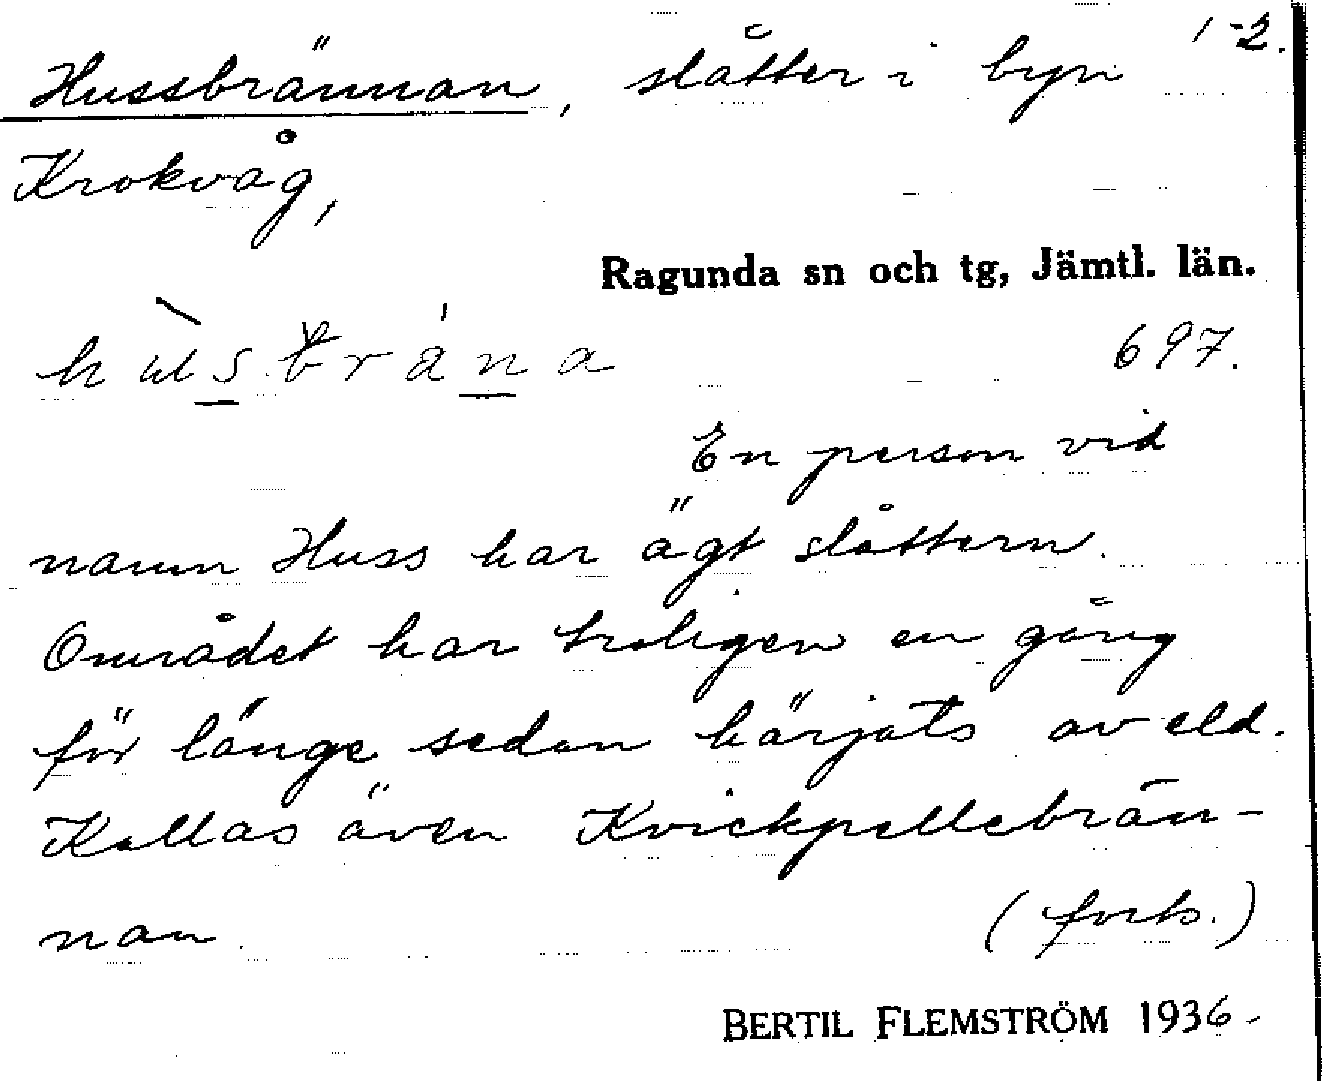 1-2.
Hussbrännan, slåtter i byn
Krokvåg,
Ragunda sn och tg, Jämtl. län.
697.
En person vid
namn Huss har ägt slåttern.
Området har troligen en gång
för länge sedan härjats av eld.
Kallas även Kvickpellebrän-
nan.
(forts.)
BERTIL FLEMSTRÖM 1936.